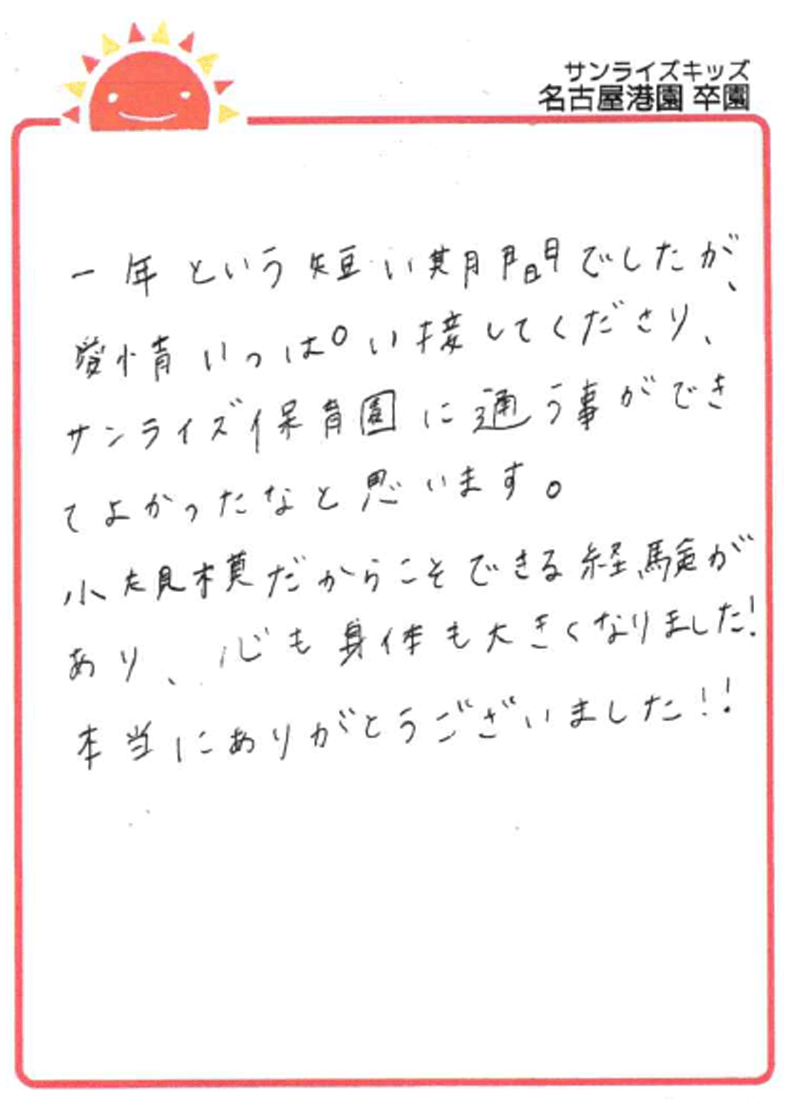 サンライズキッズ
名古屋港園 卒園
一年という短い期間でしたが、
愛情いっぱい接してくださり、
サンライズ保育園に通う事ができ
てよかったなと思います。
小規模だからこそできる経験が
あり、心も身体も大きくなりました!
本当にありがとうございました!!